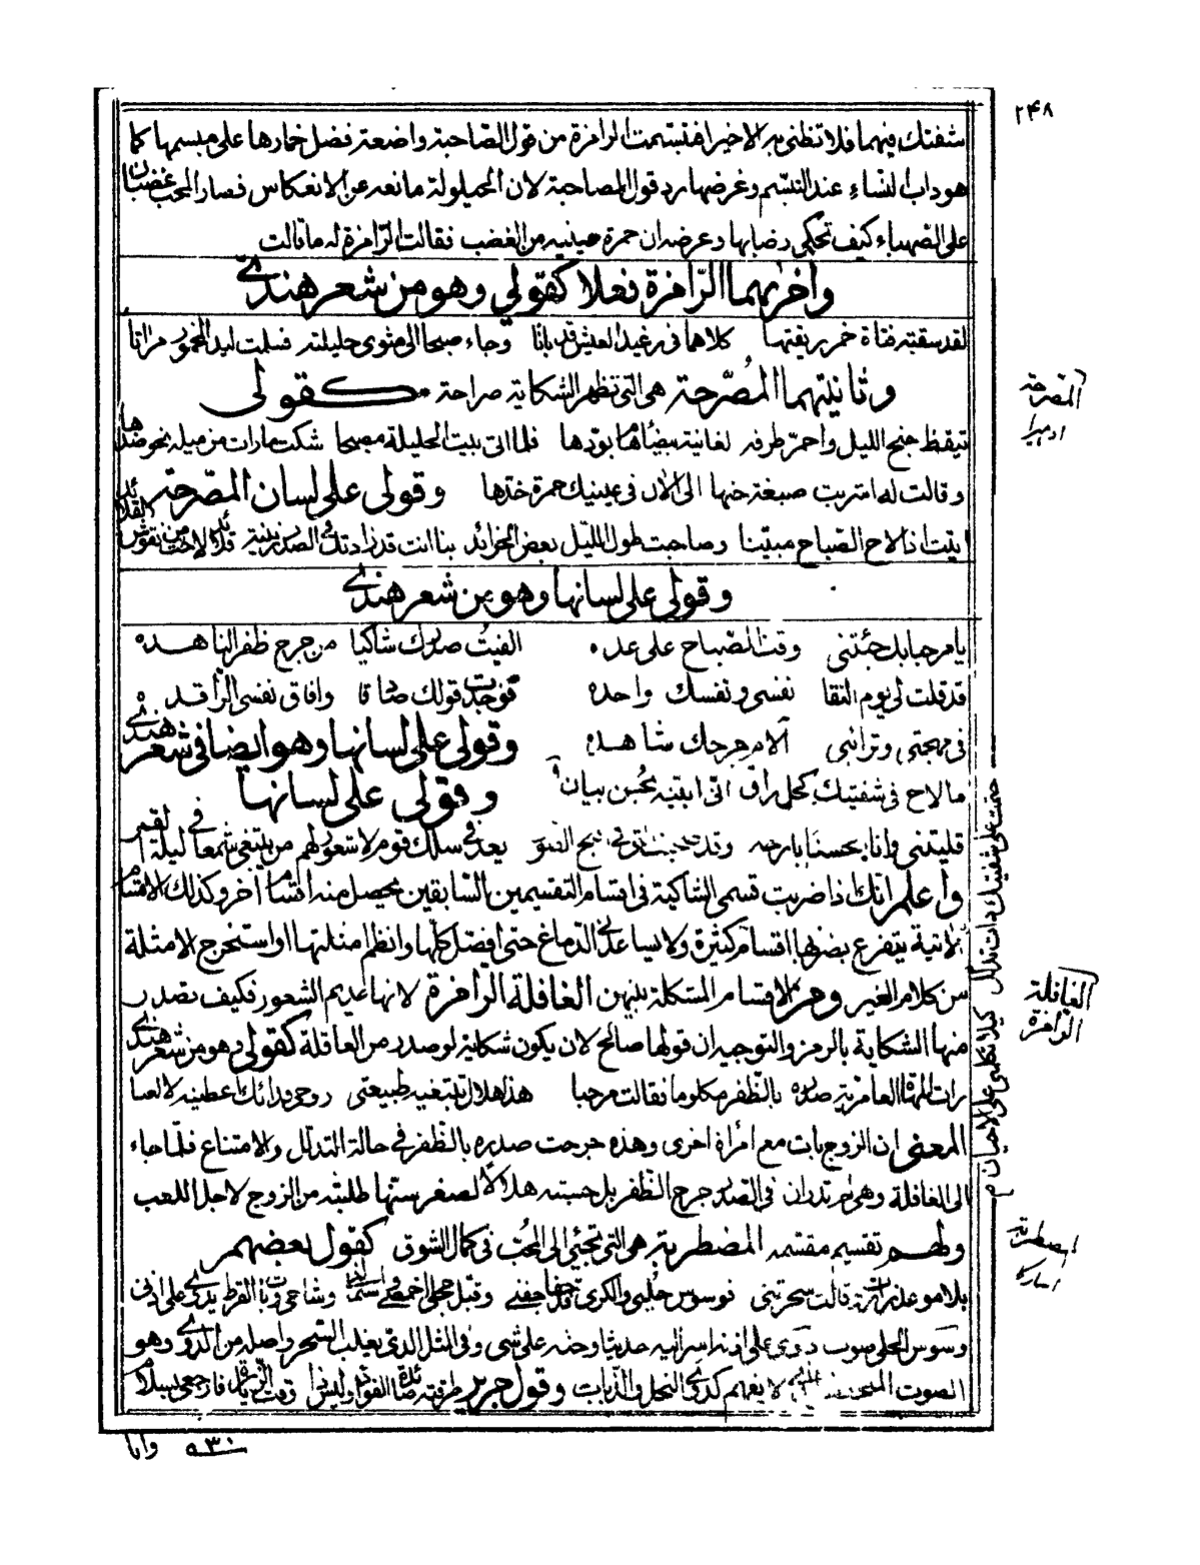 ٢٤٨
شفتك فيهما فلا تظني به الاخيرا فتبسمت الرامزة من قول الصاحبة واضعة فضل خمارها على مبسمها كما
هو داب النساء عند التبسم وغرضها رد قول المصاحبة لان الحيلولة مانعه عن الانعكاس فصار المحب غضبان
على الصهباء كيف تحكي رضابها وغرضه ان حمرة عينيه من الغضب فقالت الرامزة له ما قالت
واخراهما الرامزة فعلا كقولي وهو من شعر هندي
لقد سقته فتاة خمر ريقتها كلاهما في رغيد العيش قد باتا وجاء صبحا الى مثوى حليلته فسلت ليد المخمور مراتا
وثانيتهما المُصَرّحة هي التي تظهر الشكاية صراحة كقولي
المصرحة
تيقظ جنح الليل واحمر طرفه لغانية بودها فلما اتى بيت الحليلة مصبحا شكت ما رات من ميله نحو ضدها
وقالت له اشربت صبغة خها الى الان في عينيك حمرة خدها وقولي على لسان المصرحة
اتيت اذ لاح الصباح مبيتنا وصاحبت طول الليل بعض الخرائد بنا انت قد زادتك في الصدر زينة قلائد لاحت من نقوش القلائد
وقولي على لسانها وهو من شعر هندي
يا مرحبا بك جئتني وقت الصباح على عده الفيت صدرك شاكيا من جرح ظفر الناهده
قد قلت لي يوم النقا نفسي ونفسك واحده فوجدت قولك صادقا وافاق نفسي الراقده
في مهجتي وترائبي آلام جرحك شاهده وقولي على لسانها وهو ايضا في شعر هندي
ما لاح في شفتيك كحل راق اني ابقيه بحسن بيان وقولي على لسانها
ختمت على شفتيك ذات تدلل كيلا تكلمني على الاحيان
قليتني وانا بحسنا بارعه وقد في جنح الضو يعد في سلك قوم لا شعور لهم من يبتغي شمعا في ليلة القمر
واعلم انك اذا ضربت قسمي الشاكية في اقسام التقسيمين السابقين يحصل منه اقسام آخر وكذلك الاقسام
الآتية يتفرع بضربها اقسام كثيرة ولا يساعدني الدماغ حتى افصل كلها وانظم امثلتها او استخرج الامثلة
من كلام الغير ومن الاقسام المشكلة بينهن الغافلة الرامزة لانها عديم الشعور فكيف تصدر
الغافلة
الرامزة
منها الشكاية بالرمز والتوجيه ان قولها صالح لان يكون شكاية لو صدر من العاقلة كقولي وهو من شعر هندي
رات المها العامرية صدره بالظفر مكلوما فقالت مرحبا هذا هلال تبتغيه طبيعتي روحي فدائك اعطنيه لالعبا
المعنى ان الزوج بات مع امرأة اخرى وهذه جرحت صدره بالظفر في حالة التدلل والامتناع فلما جاء
الى الغافلة وهي لم تدر ان في الصدر جرح الظفر بل حسبته هلالا لصغر سنها طلبته من الزوج لاجل اللعب
ولهم تقسيم مقسمه المضطربة هي التي تجئي الى المحب في كمال الشوق كقول بعضهم
المضطربة
بلا موعد زارت قالت سحرتني فوسوس حليي والكرى قد جفا جفني وقبل حجلي اخمصي
وسوس الحلي صوت دوي على اذنه اسر اليه حديثا وحثه على شي وفي المثل الذي يغلب السحر واصله من الدوي وهو
الصوت لا يفهم كدوي النحل والذباب وقول جرير طرقتك صائدة الفؤاد وليس ذا وقت الزيارة فارجعي بسلام
٩٣٠ وانا